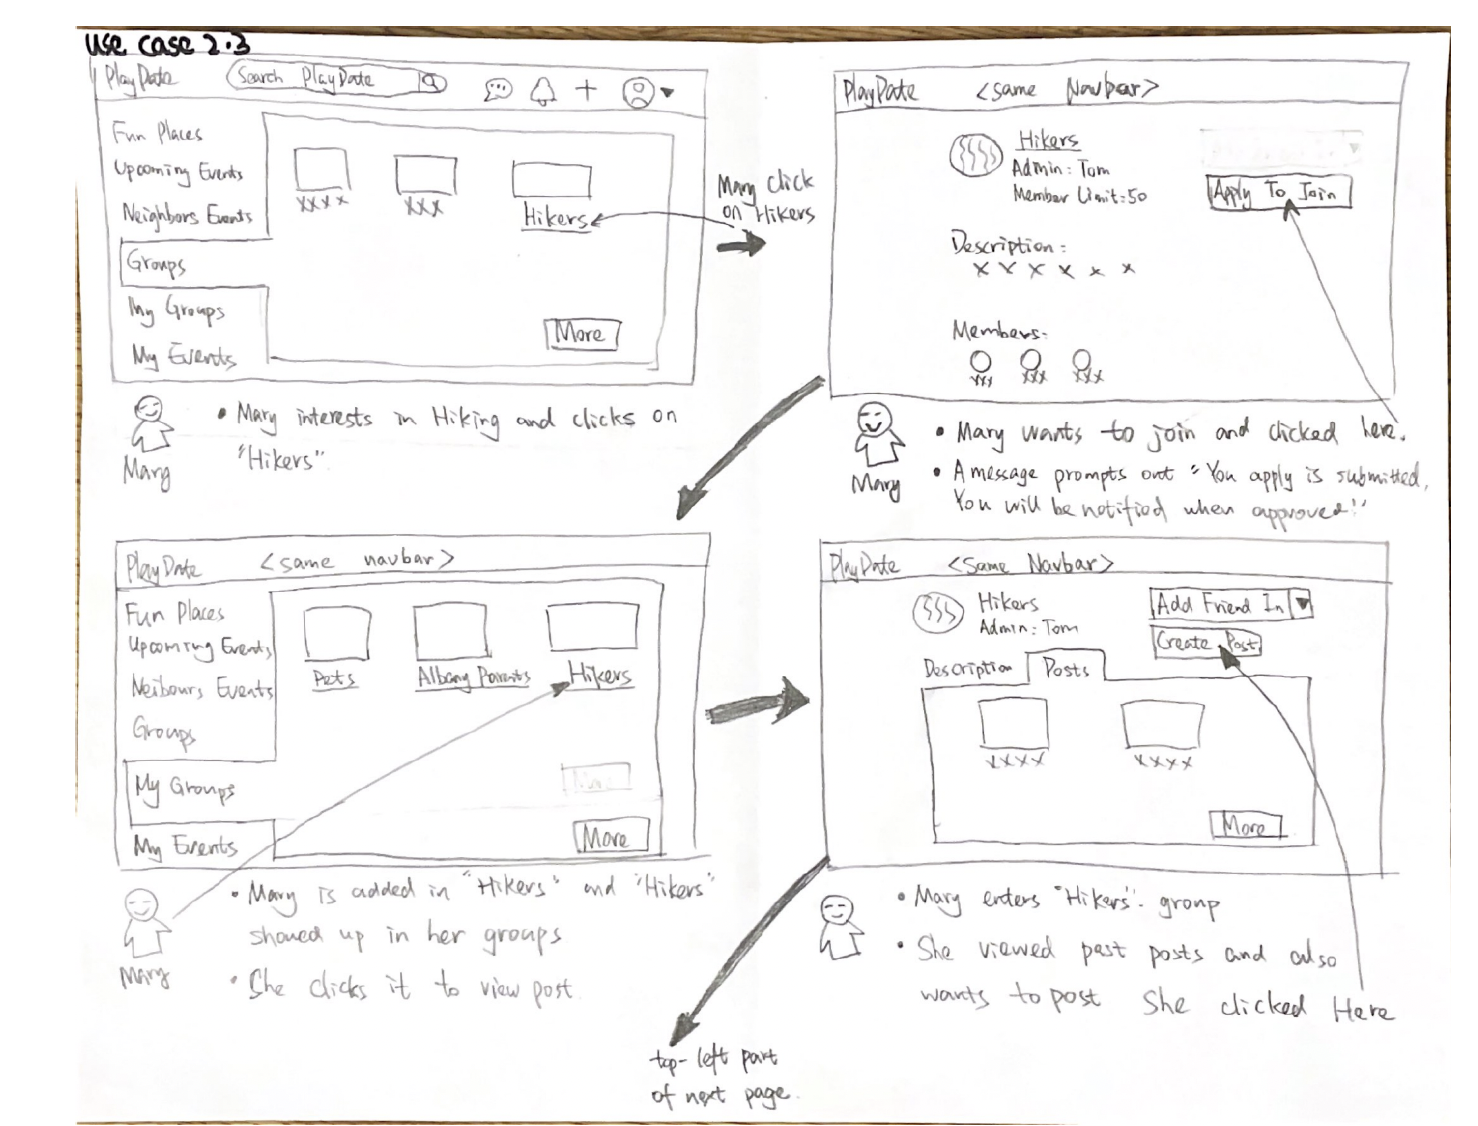 Use case 2.3
PlayDate
Search PlayDate
Fun Places
Upcoming Events
Neighbors Events
Groups
My Groups
My Events
xxxx
xxx
Hikers
More
Mary click
on Hikers
Mary
• Mary interests in Hiking and clicks on
"Hikers".
PlayDate <same Navbar>
Hikers
Admin: Tom
Member Limit: 50
Apply To Join
Description:
x x x x x x
Members:
xxx xxx xxx
Mary
• Mary wants to join and clicked here.
• A message prompts out "You apply is submitted,
You will be notified when approved!"
PlayDate <same navbar>
Fun Places
Upcoming Events
Neibours Events
Groups
My Groups
My Events
Pets
Albany Parents
Hikers
More
Mary
• Mary is added in "Hikers" and "Hikers"
showed up in her groups
• She clicks it to view post.
PlayDate <Same Navbar>
Hikers
Admin: Tom
Add Friend In
Create Post
Description
Posts
xxxx
xxxx
More
• Mary enters "Hikers". group
• She viewed past posts and also
wants to post She clicked Here
top-left part
of next page.